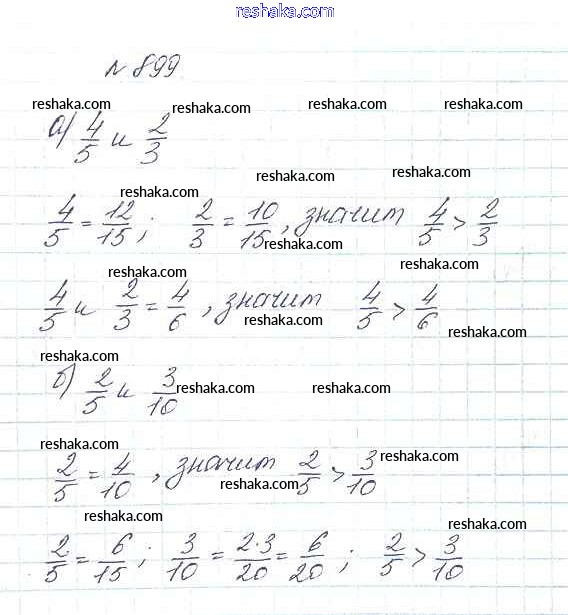 reshaka.com
№ 899
reshaka.com reshaka.com reshaka.com reshaka.com
а) 4/5 и 2/3
reshaka.com reshaka.com reshaka.com
4/5 = 12/15; 2/3 = 10/15, значит 4/5 > 2/3
reshaka.com
reshaka.com reshaka.com
4/5 и 2/3 = 4/6, значит 4/5 > 4/6
reshaka.com reshaka.com
б) 2/5 и 3/10
reshaka.com reshaka.com
reshaka.com reshaka.com
2/5 = 4/10, значит 2/5 > 3/10
reshaka.com
reshaka.com reshaka.com
2/5 = 6/15; 3/10 = 2·3/20 = 6/20; 2/5 > 3/10